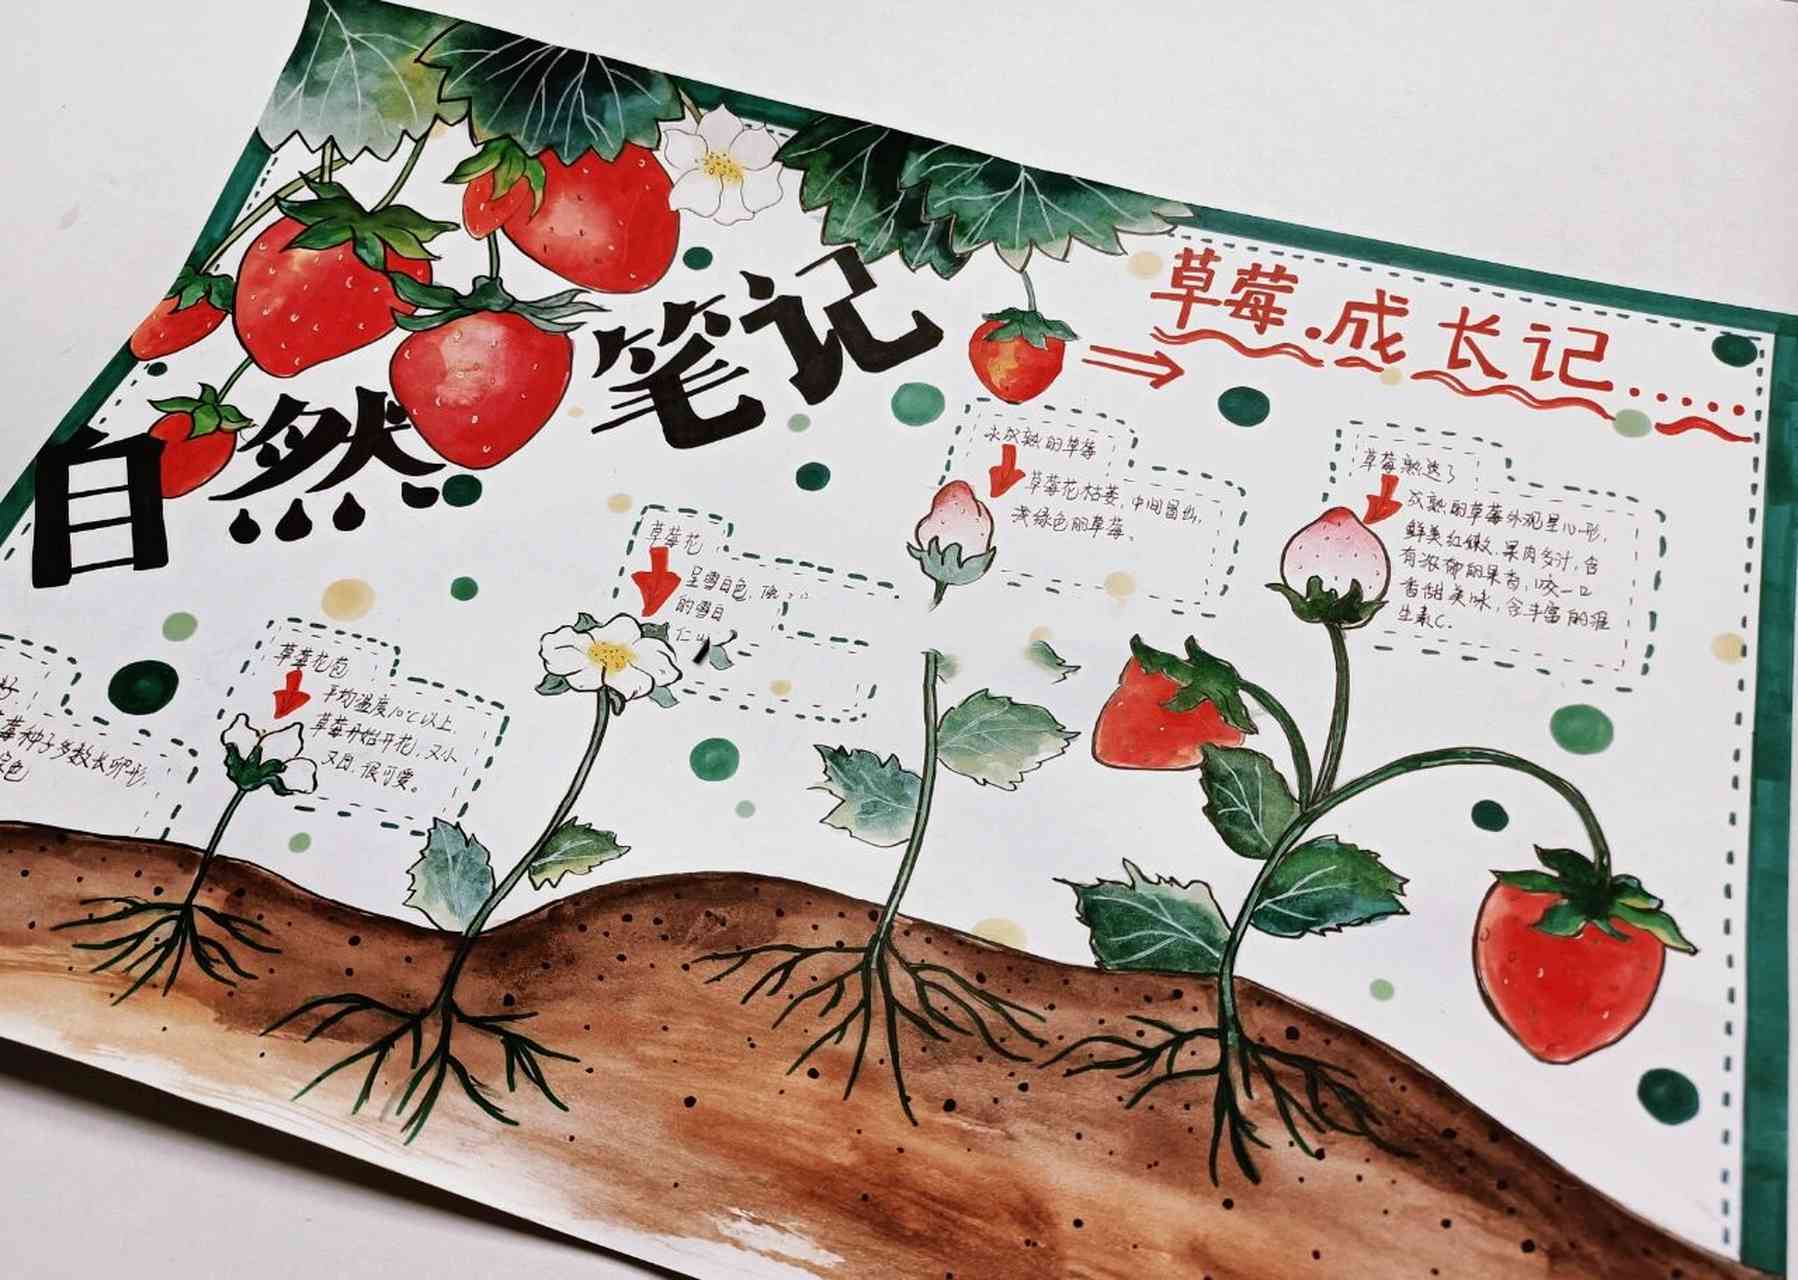 自然笔记
草莓.成长记......
莓种子多数长卵形,
草莓花苞
平均温度10℃以上
草莓开始开花,又小
又白,很可爱。
草莓花
呈雪白色,
的雪白
未成熟的草莓
草莓花枯萎,中间留出,
浅绿色的草莓、
草莓熟透了
成熟的草莓外观呈心形,
鲜美红嫩,果肉多汁,含
有浓郁的果香,咬一口
香甜美味,含丰富的维
生素C.